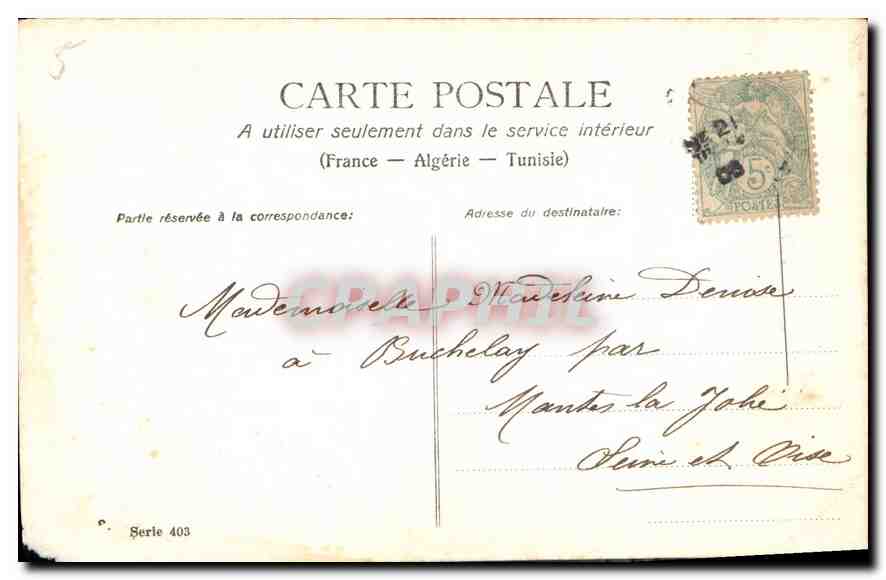 5
CARTE POSTALE
A utiliser seulement dans le service intérieur
(France — Algérie — Tunisie)
Partie réservée à la correspondance:
Adresse du destinataire:
21
08
5c
POSTES
CPAPHIL
Mademoiselle Madeleine Denise
à Buchelay par
Mantes la Jolie
Seine et Oise
Serie 403